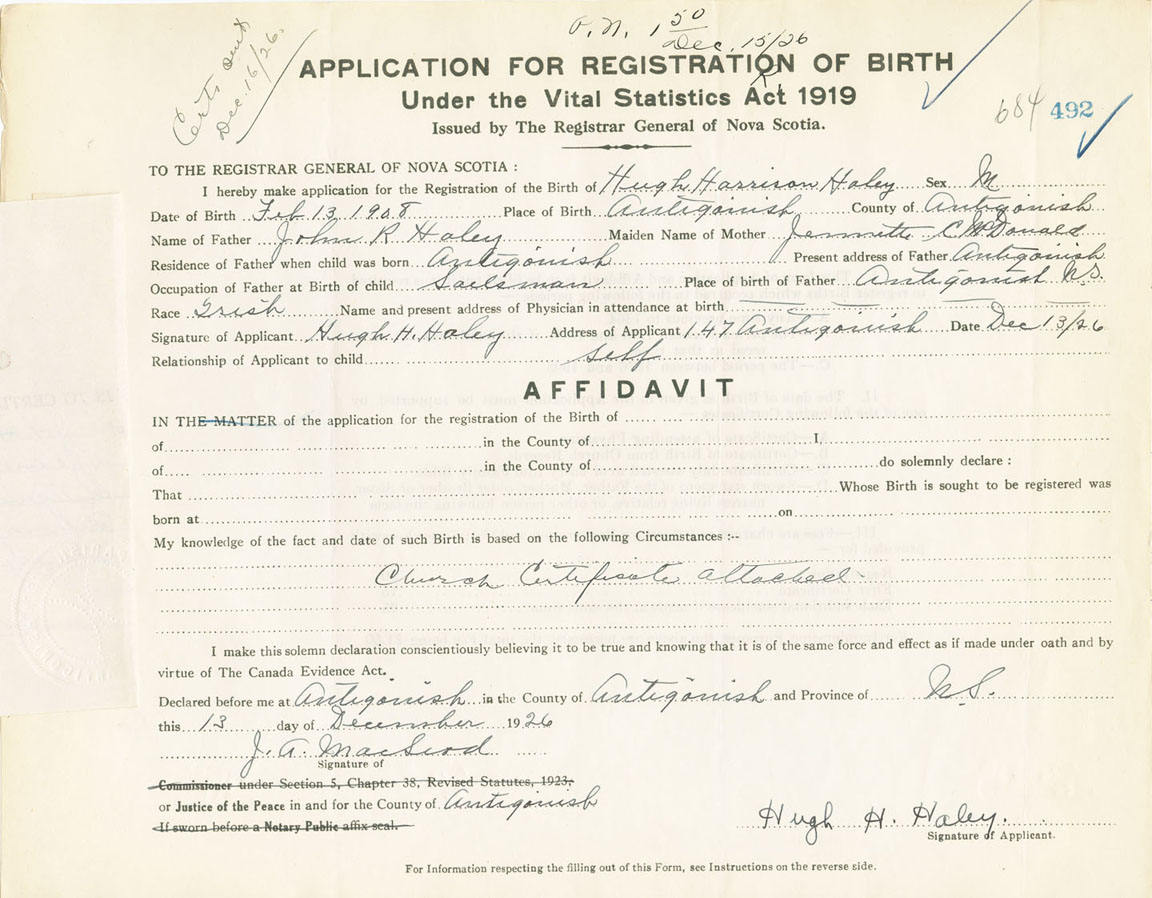 P.N. 1 50
Dec. 15/26
Certs sent
Dec. 16/26.
APPLICATION FOR REGISTRATION OF BIRTH
Under the Vital Statistics Act 1919
684 492
Issued by The Registrar General of Nova Scotia.
TO THE REGISTRAR GENERAL OF NOVA SCOTIA :
I hereby make application for the Registration of the Birth of Hugh Harrison Haley Sex M
Date of Birth Feb 13 1908 Place of Birth Antigonish County of Antigonish
Name of Father John R Haley Maiden Name of Mother Jennette C McDonald
Residence of Father when child was born Antigonish Present address of Father Antigonish
Occupation of Father at Birth of child Sailsman Place of birth of Father Antigonish N.S.
Race Irish Name and present address of Physician in attendance at birth
Signature of Applicant Hugh H. Haley Address of Applicant 147 Antigonish Date Dec 13/26
Relationship of Applicant to child self
AFFIDAVIT
IN THE MATTER of the application for the registration of the Birth of
of in the County of I,
of in the County of do solemnly declare :
That Whose Birth is sought to be registered was
born at on
My knowledge of the fact and date of such Birth is based on the following Circumstances :--
Church Certificate attached
I make this solemn declaration conscientiously believing it to be true and knowing that it is of the same force and effect as if made under oath and by
virtue of The Canada Evidence Act.
Declared before me at Antigonish in the County of Antigonish and Province of N.S.
this 13 day of December 1926
J. A. MacLeod
Signature of
Commissioner under Section 5, Chapter 38, Revised Statutes, 1923,
or Justice of the Peace in and for the County of Antigonish
If sworn before a Notary Public affix seal.
Hugh H. Haley.
Signature of Applicant.
For Information respecting the filling out of this Form, see Instructions on the reverse side.